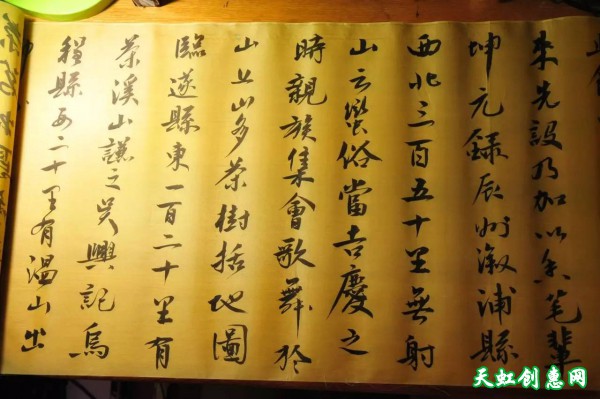 來先設乃加以香芼輩
坤元錄辰州漵浦縣
西北三百五十里無射
山云蠻俗當吉慶之
時親族集會歌舞於
山上山多茶樹括地圖
臨遂縣東一百二十里有
茶溪山謙之吳興記烏
程縣西二十里有溫山出
天虹创惠网